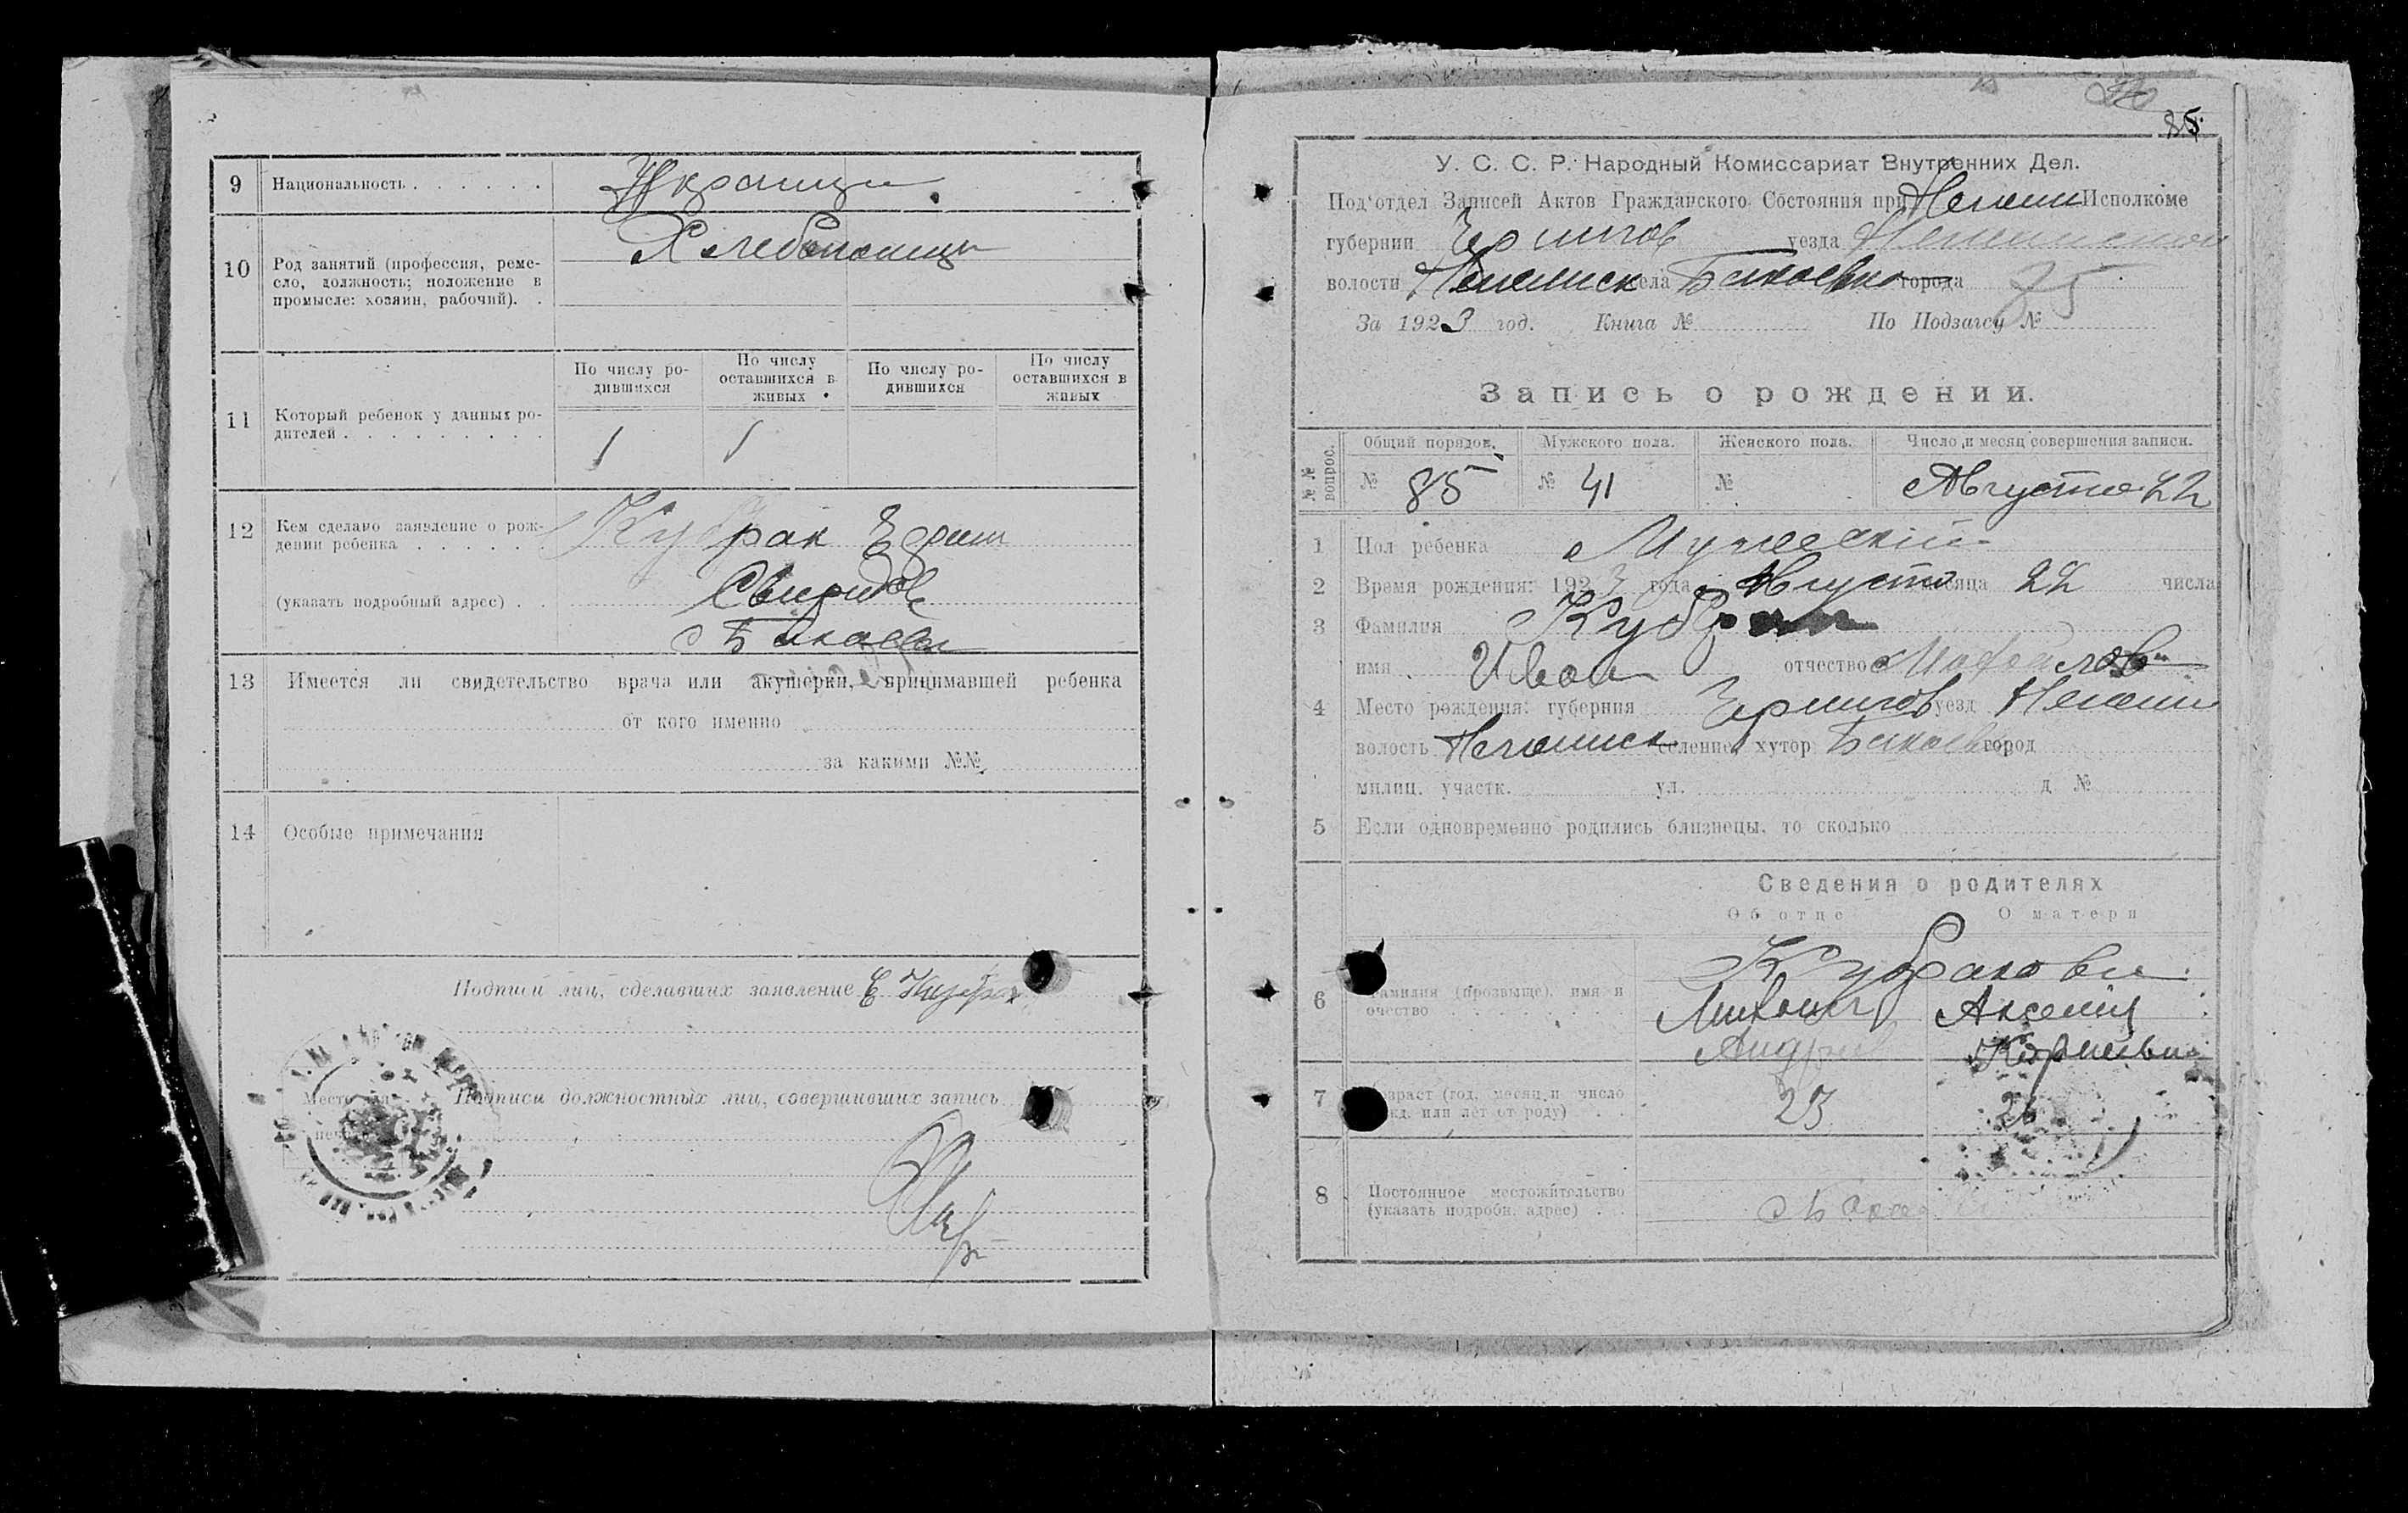 9 Национальность . . . . . . Украинци
10 Род занятий (профессия, реме-
сло, должность; положение в
промысле: хозяин, рабочий). .
Хлебопашци
11 Который ребенок у данных ро-
дителей . . . . . . . . . .
По числу ро-
дившихся
По числу
оставшихся в
живых
По числу ро-
дившихся
По числу
оставшихся в
живых
1 1
12 Кем сделано заявление о рож-
дении ребенка . . . . . Кубрак
(указать подробный адрес) . .
13 Имеется ли свидетельство врача или акушерки, принимавшей ребенка
от кого именно
за какими №№
14 Особые примечания
Подписи лиц, сделавших заявление Е Кубрак
Место для
печати
Подписи должностных лиц, совершивших запись
85
У. С. С. Р. Народный Комиссариат Внутренних Дел.
Под'отдел Записей Актов Гражданского Состояния при Нежин Исполкоме
губернии Чернигов уезда
волости Нежинск села города
85
За 1923 год. Книга № По Подзагсу №
Запись о рождении.
№№ вопрос. Общий порядок. Мужского пола. Женского пола. Число и месяц совершения записи.
№ 85 № 41 № Августа 22
1 Пол ребенка Мужеский
2 Время рождения: 1923 года Августа месяца 22 числа
3 Фамилия Кубрак
имя Иван отчество
4 Место рождения: губерния Чернигов уезд Нежин
волость Нежинск селение, хутор город
милиц. участк. ул. д №
5 Если одновременно родились близнецы, то сколько
Сведения о родителях
Об отце О матери
6 Фамилия (прозвыще), имя и
очество . . . . . . . . .
Кубракови
Михаил Аксения
Андреев Корниевна
7 Возраст (год, месяц и число
рожд. или лет от роду) . . .
23
8 Постоянное местожительство
(указать подробн. адрес) . .